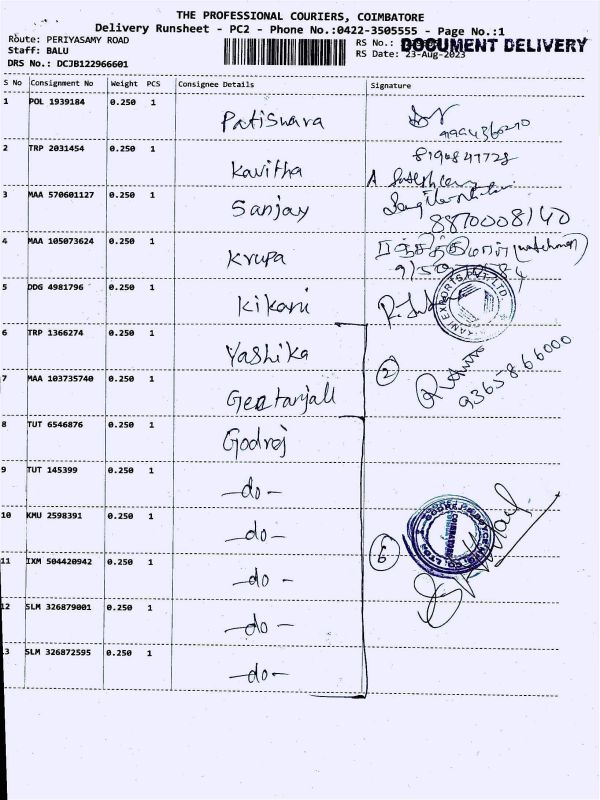 THE PROFESSIONAL COURIERS, COIMBATORE
Delivery Runsheet - PC2 - Phone No.:0422-3505555 - Page No.:1
Route: PERIYASAMY ROAD
RS No.:
DOCUMENT DELIVERY
Staff: BALU
RS Date: 23-Aug-2023
DRS No.: DCJB122966601
S No Consignment No Weight PCS Consignee Details Signature
1 POL 1939184 0.250 1 Patiswara
9994360290
2 TRP 2031454 0.250 1 Kavitha
8190841728
3 MAA 570601127 0.250 1 Sanjay
8870008140
4 MAA 105073624 0.250 1 Krupa
(watchman)
5 DDG 4981796 0.250 1 Kikani
6 TRP 1366274 0.250 1 Yashika
2
9365866000
7 MAA 103735740 0.250 1 Geetanjali
8 TUT 6546876 0.250 1 Godrej
9 TUT 145399 0.250 1 -do-
10 KMU 2598391 0.250 1 -do-
6
11 IXM 504420942 0.250 1 -do-
12 SLM 326879001 0.250 1 -do-
13 SLM 326872595 0.250 1 -do-